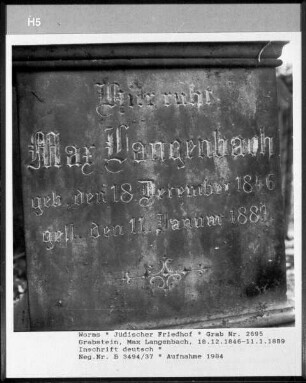 H5
Hier ruht
Max Langenbach
geb. den 18. Dezember 1846
gest. den 11. Januar 1889
Worms * Jüdischer Friedhof * Grab Nr. 2695
Grabstein, Max Langenbach, 18.12.1846-11.1.1889
Inschrift deutsch *
Neg.Nr. B 3494/37 * Aufnahme 1984